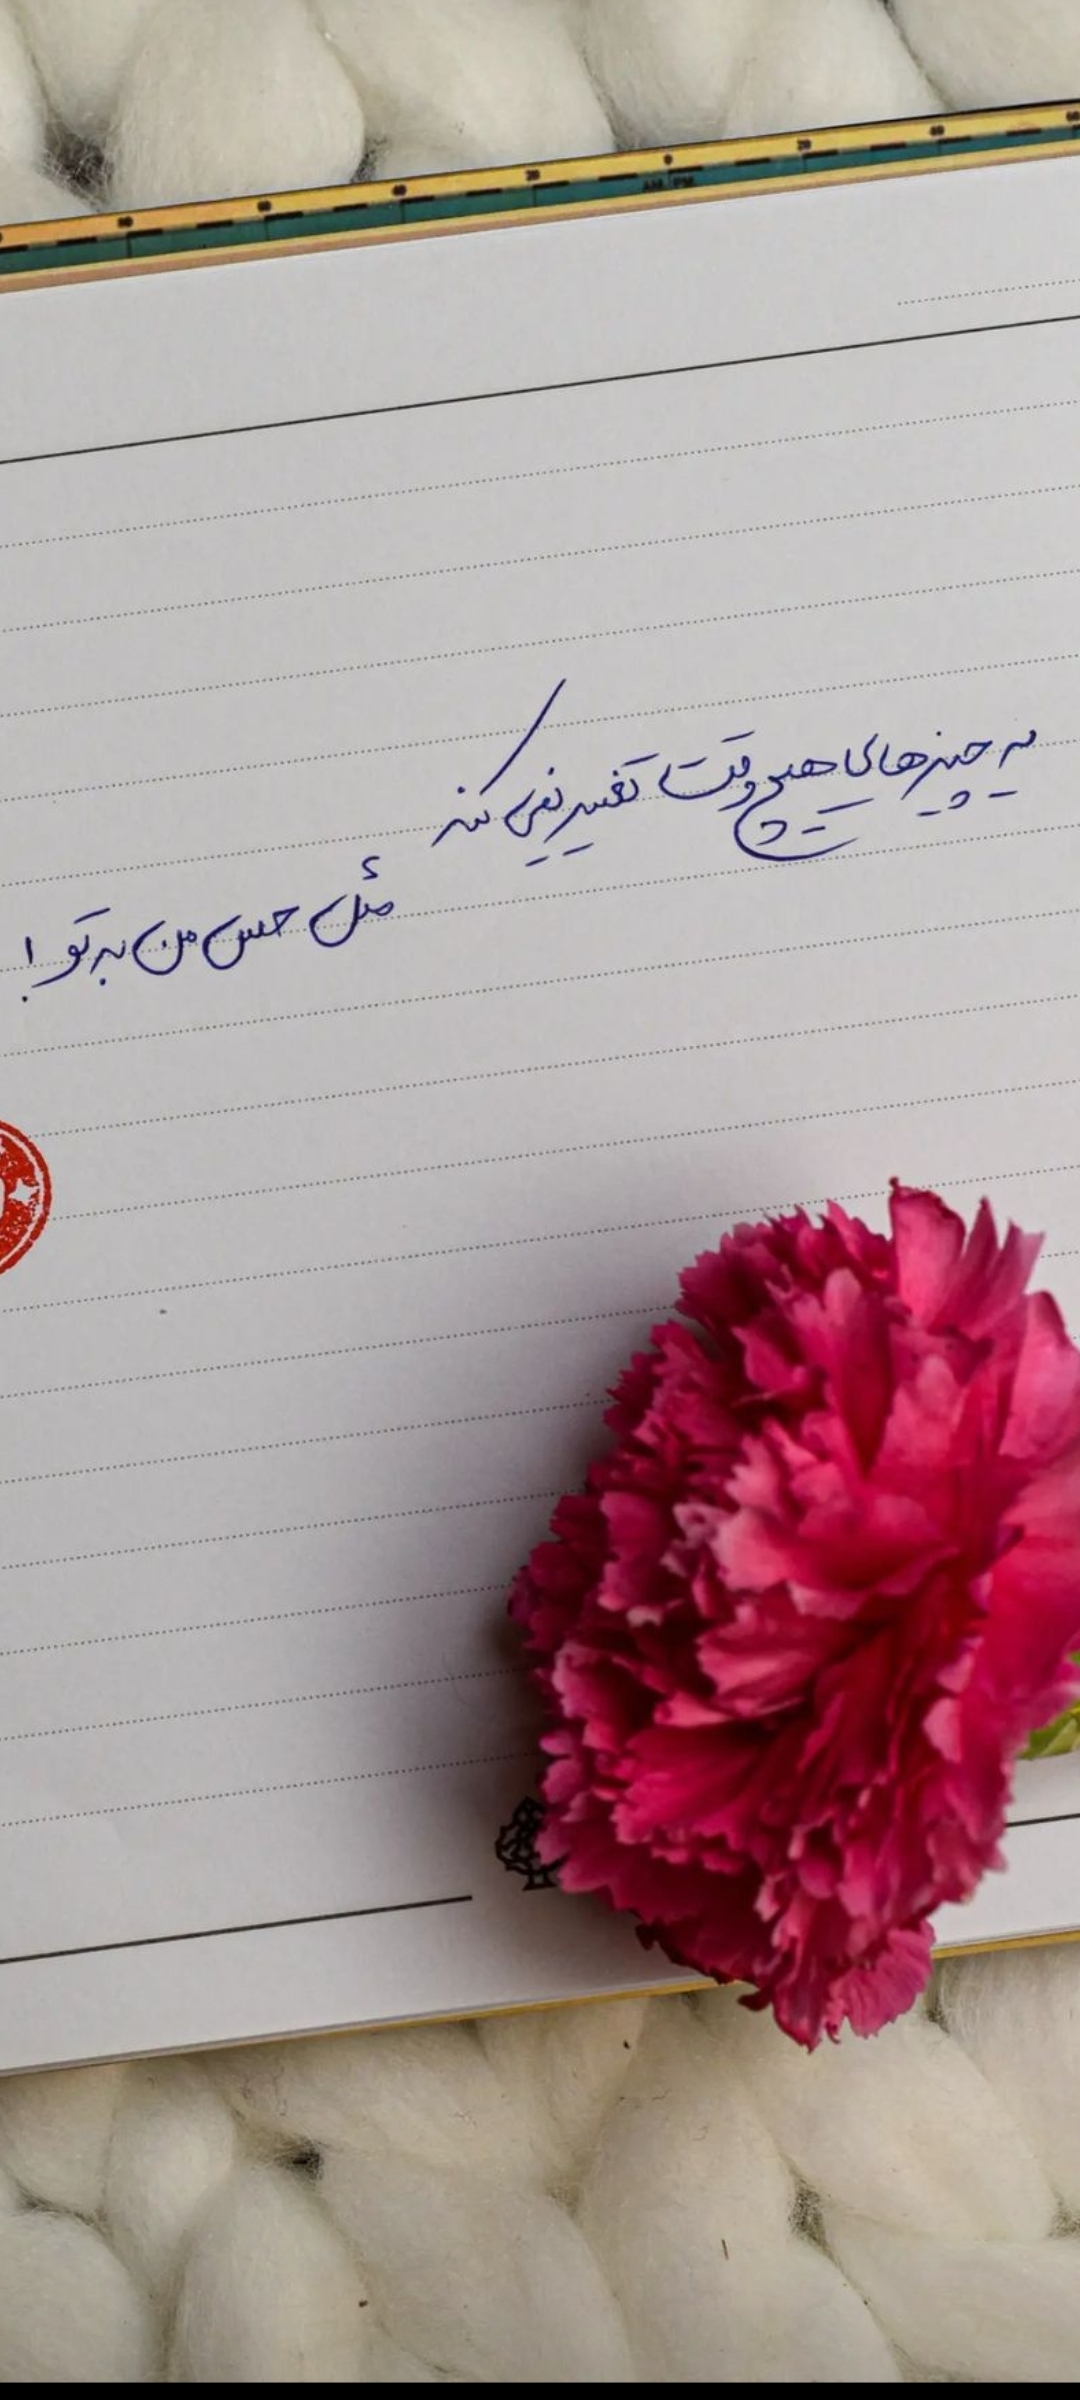 یه چیزهایی هیچ وقت تغییر نمی کند
مثل حس من به تو!